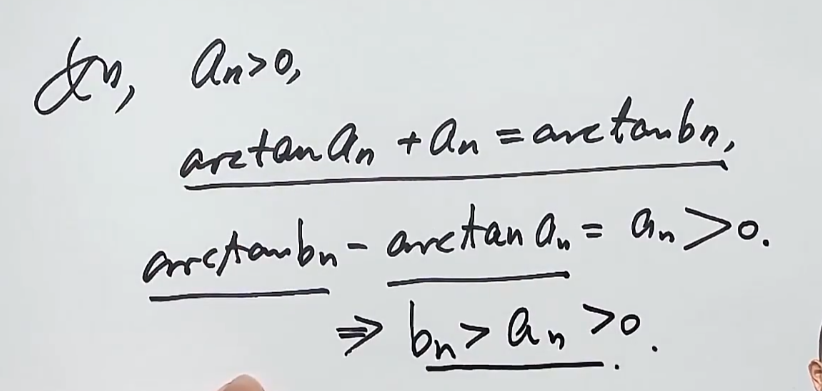 ∀n, aₙ>0,
arctan aₙ + aₙ = arctan bₙ,
arctan bₙ - arctan aₙ = aₙ > 0.
⇒ bₙ > aₙ > 0.